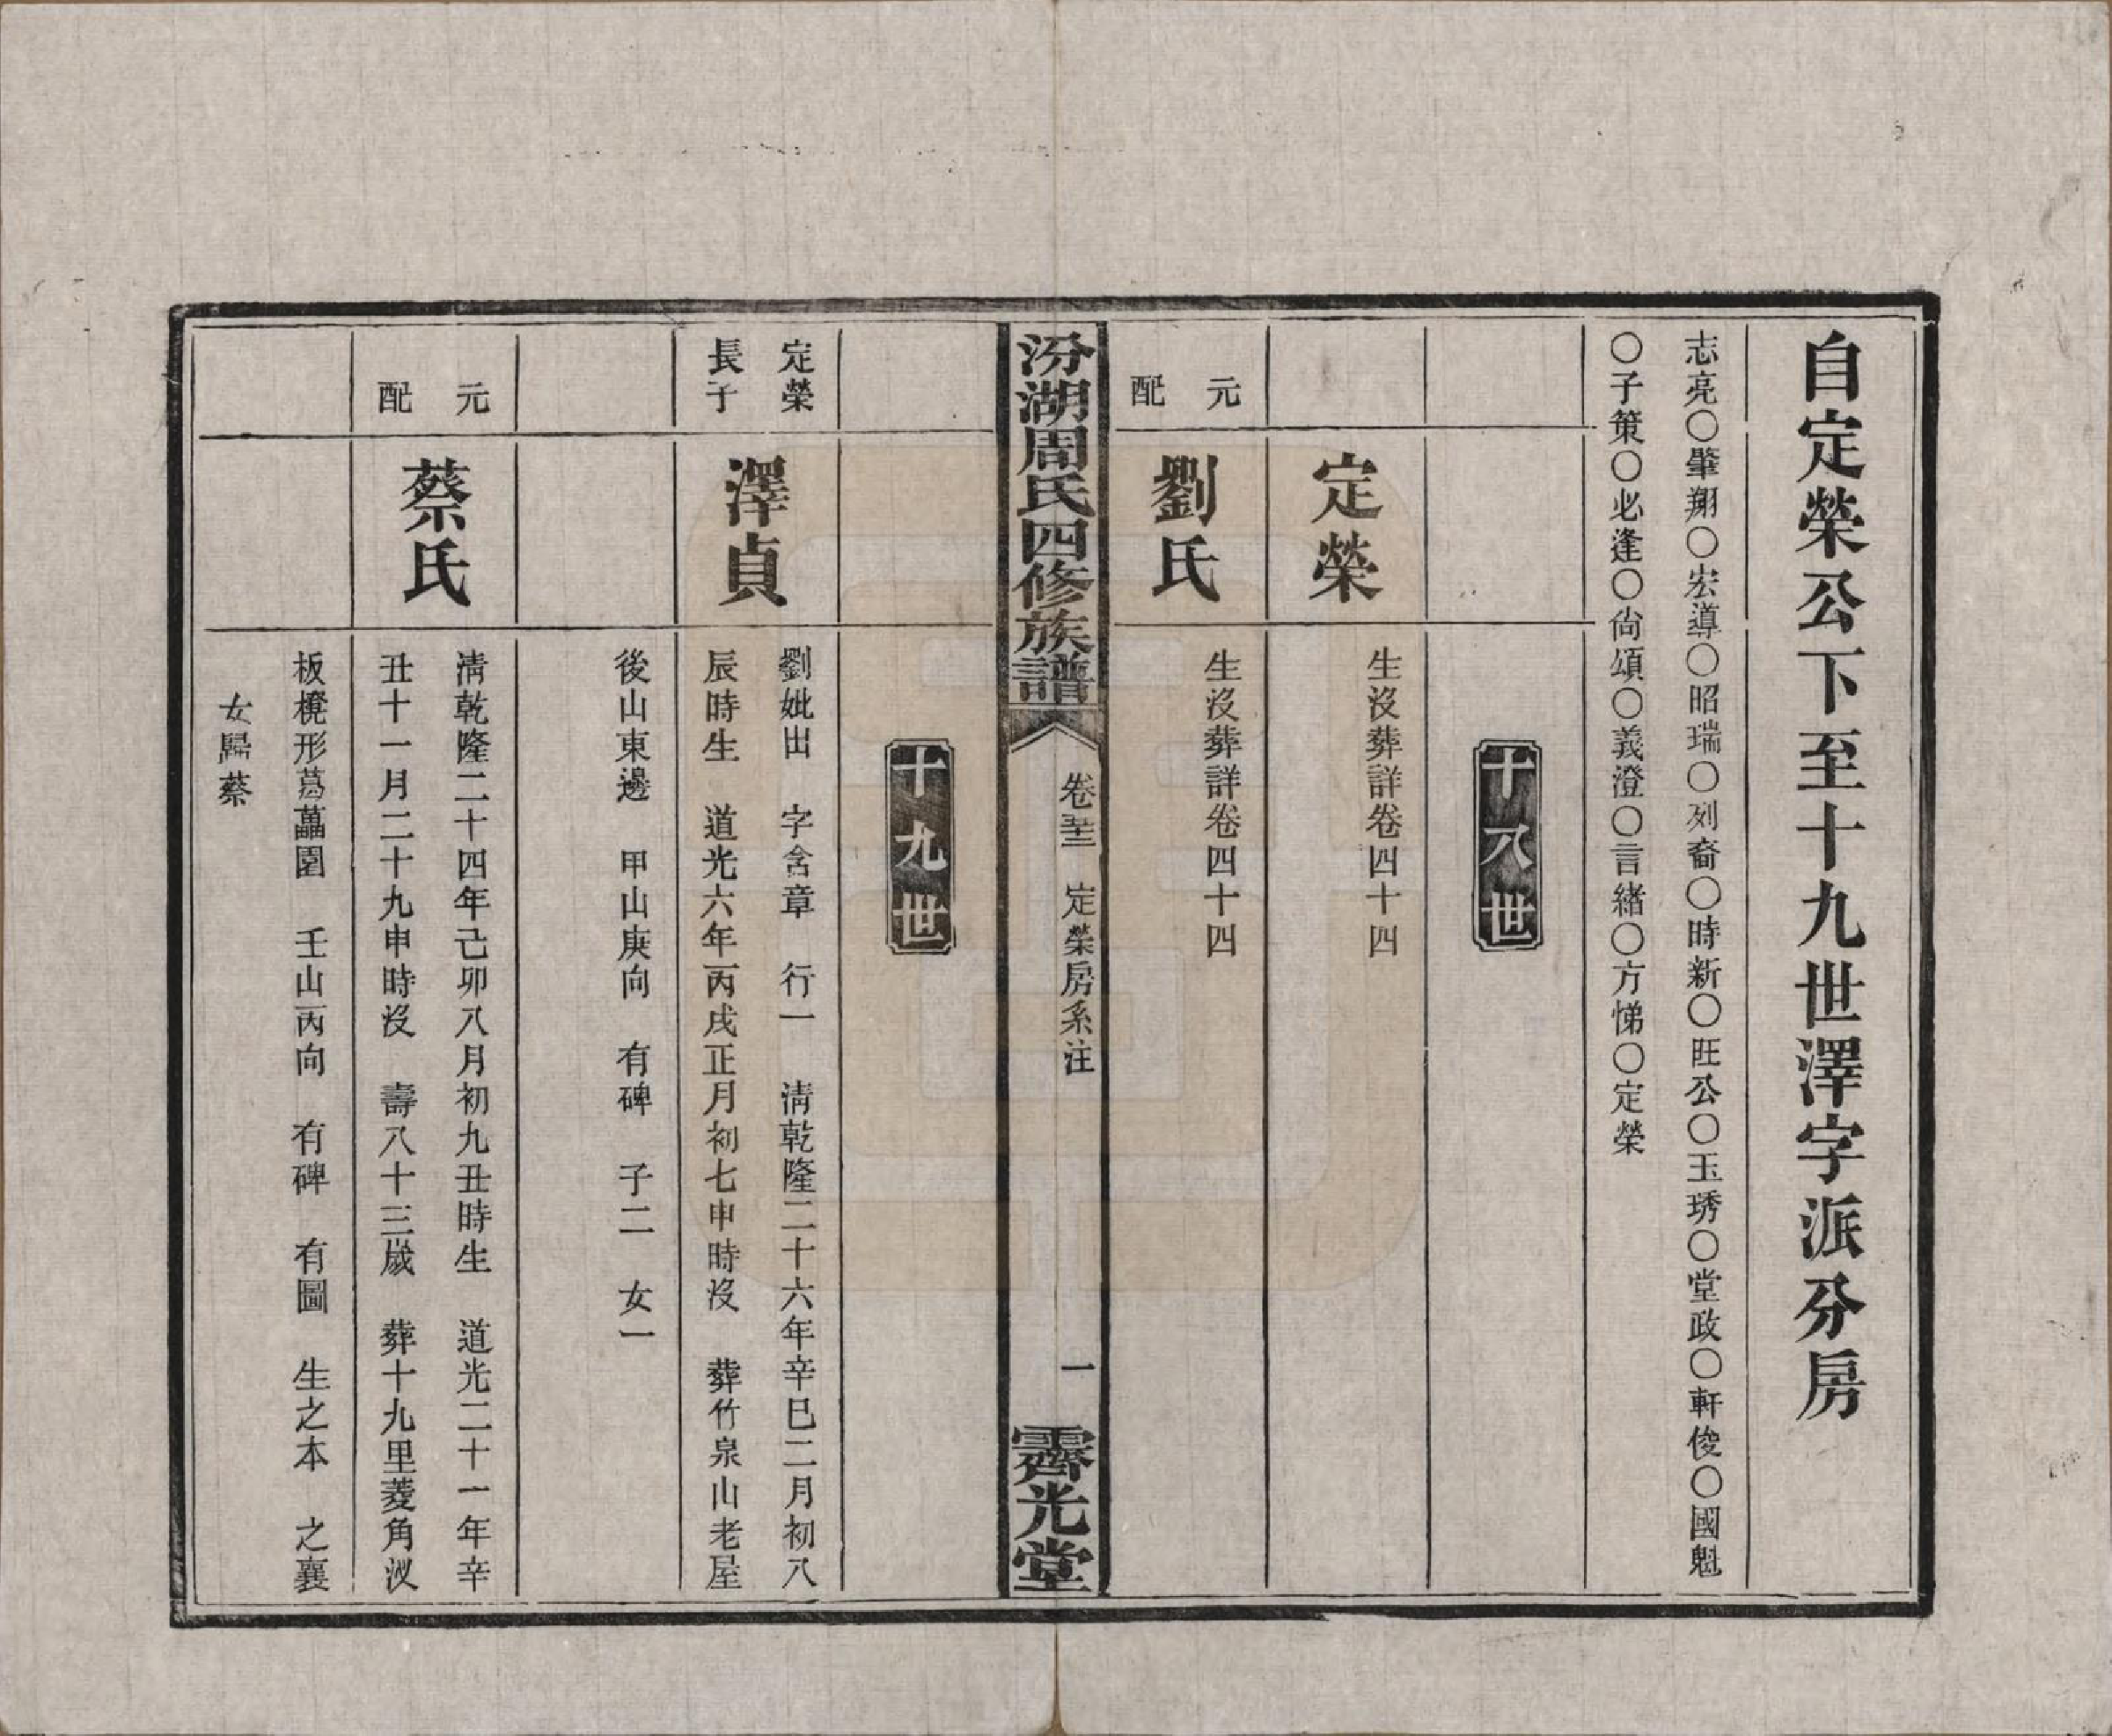 自定榮公下至十九世澤字派分房
志亮〇肇翔〇宏導〇昭瑞〇列裔〇時新〇旺公〇玉琇〇堂政〇軒俊〇國魁
〇子策〇必逢〇尙頌〇義澄〇言緒〇方悌〇定榮
十八世
定榮
生沒葬詳卷四十四
元配
劉氏
生沒葬詳卷四十四
汾湖周氏四修族譜
定榮房系注
一
霽光堂
十九世
定榮
長子
澤貞
劉妣出 字含章 行一 淸乾隆二十六年辛巳二月初八
辰時生 道光六年丙戌正月初七申時沒 葬竹泉山老屋
後山東邊 甲山庚向 有碑 子二 女一
元配
蔡氏
淸乾隆二十四年己卯八月初九丑時生 道光二十一年辛
丑十一月二十九申時沒 壽八十三歲 葬十九里菱角汊
板櫈形葛藟園 壬山丙向 有碑 有圖 生之本 之襄
女歸蔡